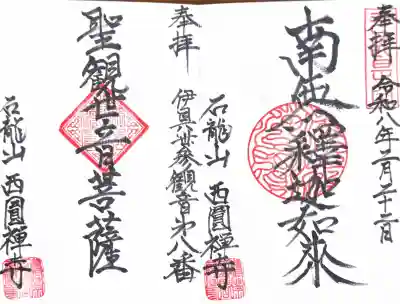 奉拝
令和八年二月二十二日
南無釋迦如来
石龍山 西圓禅寺
奉拝
伊具卅三番観音第八番
聖観世音菩薩
石龍山 西圓禅寺